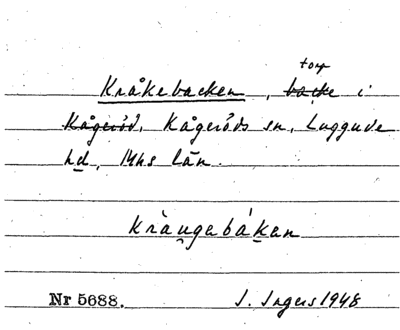 torp
Kråkebacken, backe i
Kågeröd, Kågeröds sn, Luggude
hd, Mhs län.
kràugabákan
Nr 5688. I. Ingers 1948